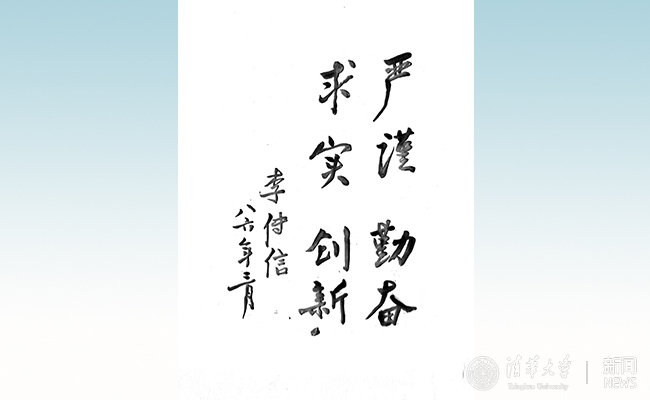 严谨 勤奋
求实 创新。
李传信
八六年三月
清华大学
Tsinghua University
新闻
NEWS